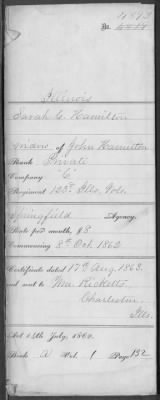 No.
Illinois
Sarah C. Hamilton
of John Hamilton
Rank Private
Company "C"
Regiment 123d Ills. Vols.
Springfield Agency.
Rate per month, $8
Commencing 8th Oct. 1862
Certificate dated 17th Aug. 1863.
and sent to Wm Ricketts,
Charleston,
Ills.
Act 14th July, 1862.
Book Vol. Page 132